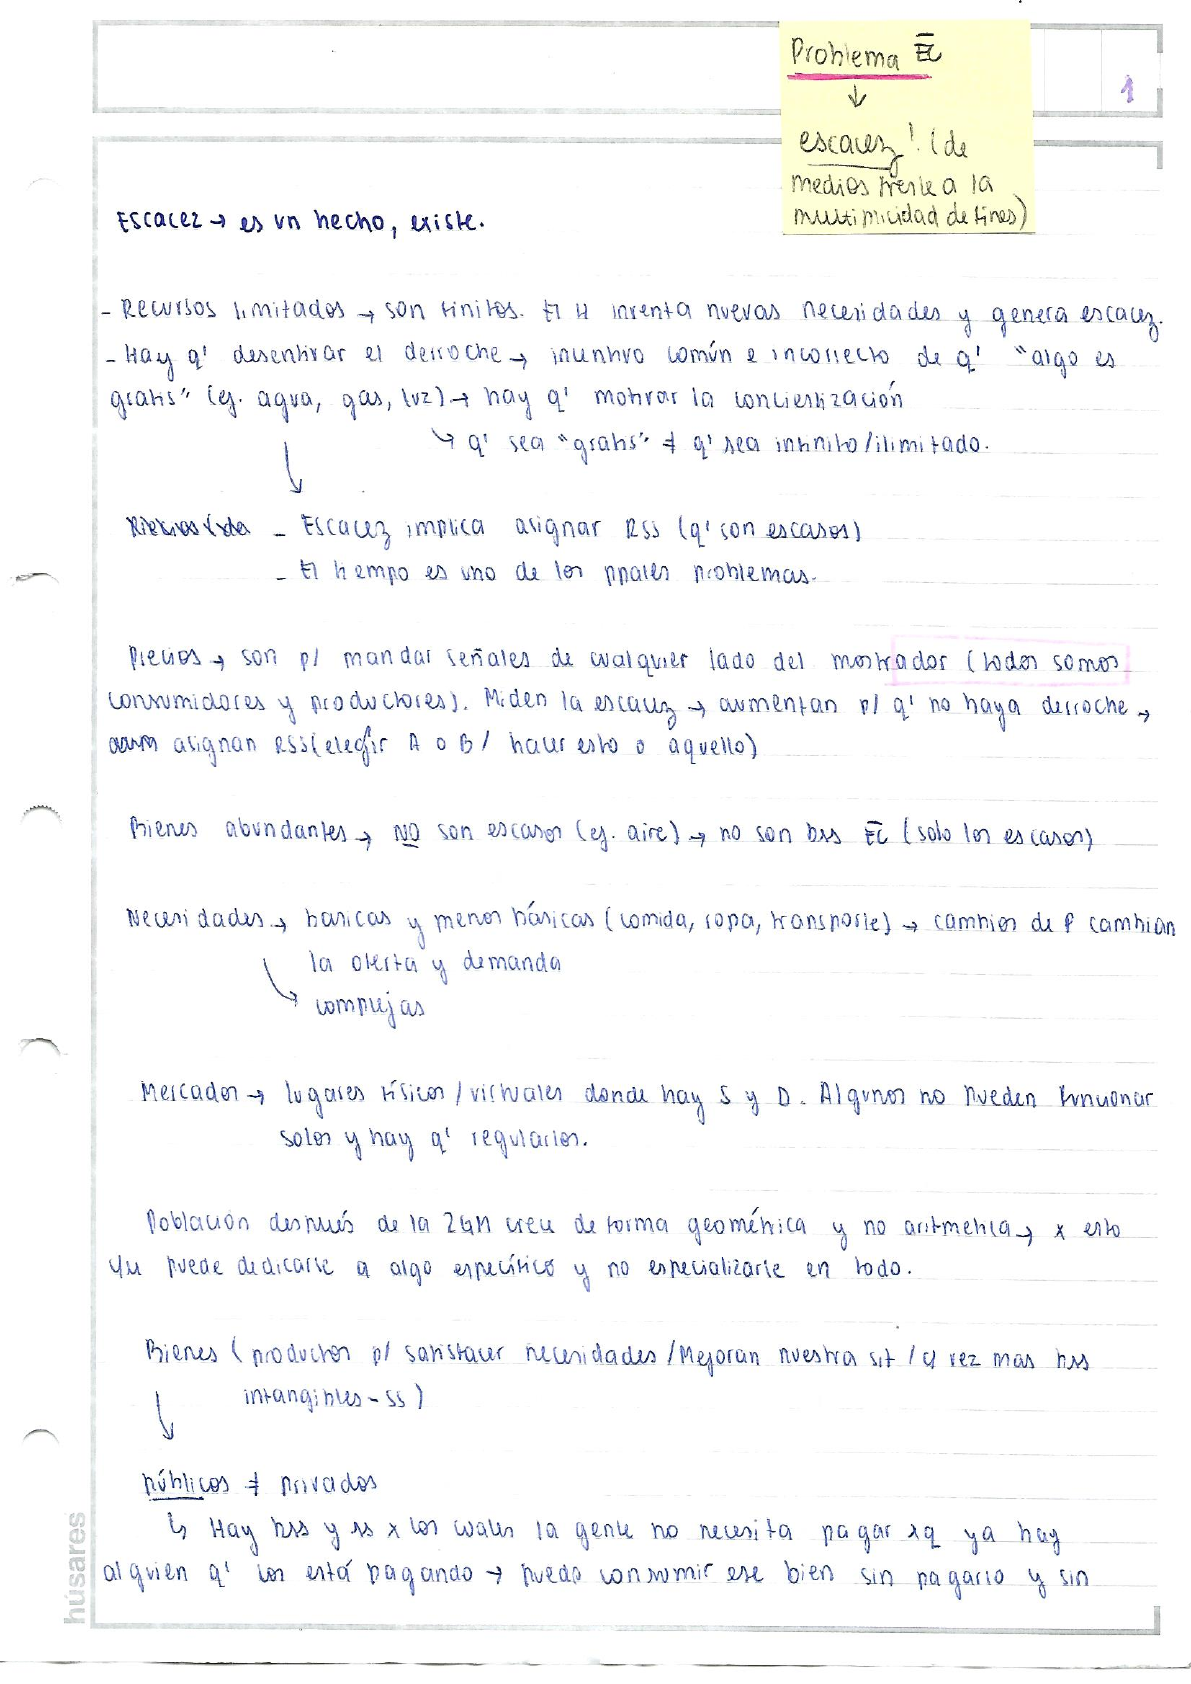 Problema EC
↓
escacez! (de
medios frente a la
multiplicidad de fines)
1
Escacez → es un hecho, existe.
- Recursos limitados → son finitos. El H inventa nuevas necesidades y genera escacez.
- Hay q' desentivar el derroche → incentivo común e incorrecto de q' "algo es
gratis" (ej. agua, gas, luz) → hay q' motivar la concientización
↳ q' sea "gratis" ≠ q' sea infinito/ilimitado.
- Escacez implica asignar RSS (q' son escasos)
- El tiempo es uno de los ppales problemas.
Precios → son p/ mandar señales de cualquier lado del mostrador (todos somos
consumidores y productores). Miden la escacez → aumentan p/ q' no haya derroche →
asignan RSS (elegir A o B / hacer esto o aquello)
Bienes abundantes → NO son escasos (ej. aire) → no son bss EC (solo los escasos)
Necesidades → básicas y menos básicas (comida, ropa, transporte) → cambios de P cambian
la oferta y demanda
↳ complejas
Mercados → lugares físicos/virtuales donde hay S y D. Algunos no pueden funcionar
solos y hay q' regularlos.
Población después de la 2GM crece de forma geométrica y no aritmética → x esto
c/u puede dedicarse a algo específico y no especializarse en todo.
Bienes (productos p/ satisfacer necesidades / Mejoran nuestra sit / c/ vez mas bss
intangibles - ss)
↓
públicos ≠ privados
↳ Hay bss y ss x los cuales la gente no necesita pagar xq ya hay
alguien q' los está pagando → puedo consumir ese bien sin pagarlo y sin
húsares